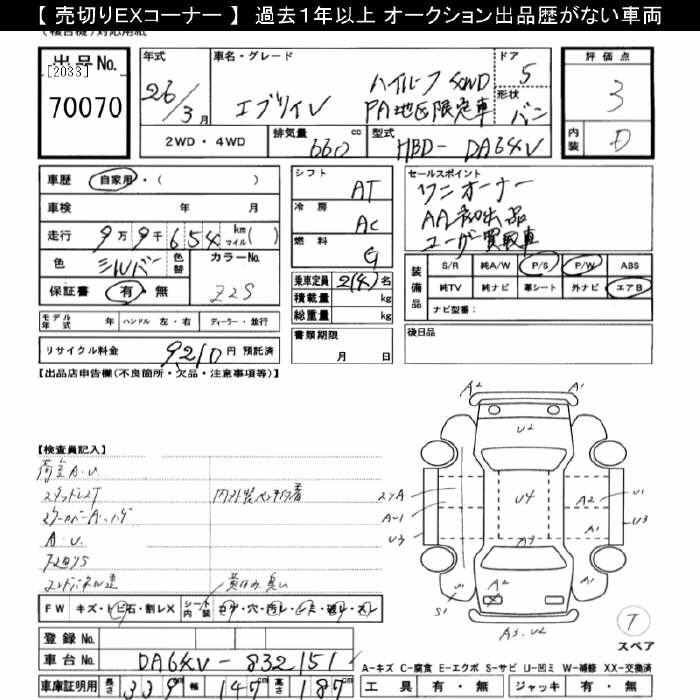 【 売切りEXコーナー 】 過去1年以上 オークション出品歴がない車両
出品No.
[2033]
70070
年式
26/3月
車名・グレード
エブリイV
ハイルーフ 4WD
PA地区限定車
ドア
5
形状
バン
評価点
3
内装
D
2WD・4WD
排気量 660 cc
型式 HBD- DA64V
車歴 自家用・( )
車検 年 月
走行 9万9千654 km マイル( )
色 シルバー 色替 カラーNo.
保証書 有・無 Z2S
モデル年式 年 ハンドル 左・右 ディーラー・並行
リサイクル料金 9210円 預託済
シフト AT
冷房 AC
燃料 G
乗車定員 2(4)名
積載量 kg
総重量 kg
書類期限
月 日
セールスポイント
ワンオーナー
AA初出品
ユーザー買取車
装備品
S/R 純A/W P/S P/W ABS
純TV 純ナビ 革シート 外ナビ エアB
ナビ型番:
後日品
【出品店申告欄(不良箇所・欠品・注意事項等)】
【検査員記入】
荷室A.U.
A.U.
F W キズ・トビ石・割レX シート内装
登録No.
車台No. DA64V-832151
車庫証明用 長さ 339cm 幅 147cm 高さ 187cm
A2 A1
U2
U4
A2 U1
U3
A1
A-U1
U3
A3
A2
U1
S1
A3.U2
T
スペア
A-キズ C-腐食 E-エクボ S-サビ U-凹ミ W-補修 XX-交換済
工具 有・無 ジャッキ 有・無